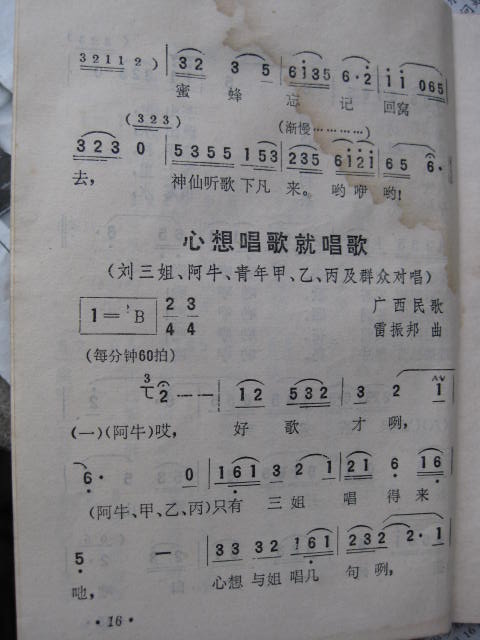 3 2 1 1 2 ) | 3 2 3 5 | 6 i 3 5 6· 2 | i i 0 6 5
蜜 蜂 忘 记 回窝
( 3 2 3 ) (渐慢…………)
3 2 3 0 | 5 3 5 5 1 5 3 | 2 3 5 6 i 2 i | 6 5 6·
去， 神仙听歌 下凡 来。 哟 咿 哟!
心想唱歌就唱歌
(刘三姐、阿牛、青年甲、乙、丙及群众对唱)
1=♭B 2/4 3/4 广西民歌
雷振邦 曲
(每分钟60拍)
3 2 - - | 1 2 5 3 2 | 3 2 1
(一)(阿牛)哎， 好 歌 才 咧，
6· 0 | 1 6 1 3 2 1 | 2 1 6 1 6
(阿牛、甲、乙、丙)只有 三 姐 唱 得 来
5 - | 3 3 3 2 1 6 1 | 2 3 2 2· 1
吔， 心想 与姐 唱几 句 咧，
·16·